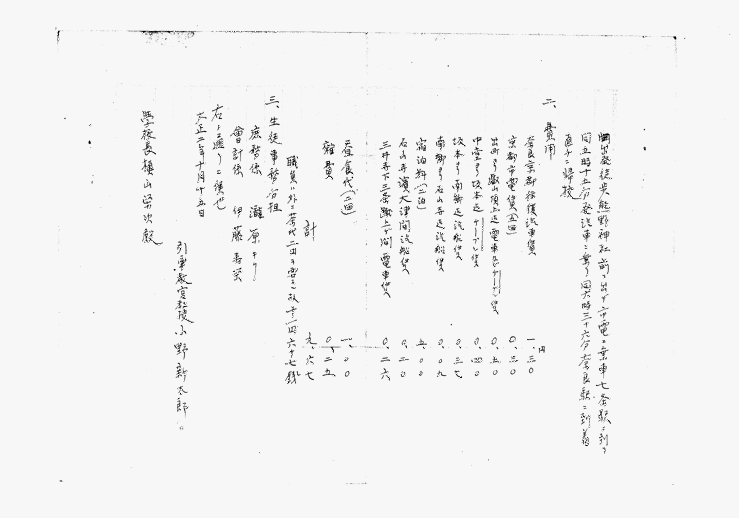 出發徒歩熊野神社前ニ出デ市電ニ乗車七条駅ニ到リ
同五時十五分発汽車ニ乗リ同六時三十六分奈良駅ニ到着
直チニ帰校
二、費用
奈良京都往復汽車賃 一、三〇円
京都市電賃(五回) 〇、三〇
出町ヨリ叡山頂上迄電車及ケーブル賃 〇、五〇
中堂ヨリ坂本迄ケーブル賃 〇、四〇
坂本ヨリ南郷迄汽船賃 〇、三七
南郷ヨリ石山寺迄汽船賃 〇、〇九
宿泊料(二泊) 五、〇〇
石山寺濱大津間汽船賃 〇、二〇
三井寺下三条蹴上ケ間電車賃 〇、二六
昼食代(二回) 一、〇〇
雑費 〇、二五
計 九、六七
職員ハ外ニ茶代二円ヲ要ス故十一円六十七銭
三、生徒事務分担
庶務係 瀧原
會計係 伊藤
右ノ通リニ候也
大正 年十月十五日
引率教官 小野新太郎
學校長横山栄次殿